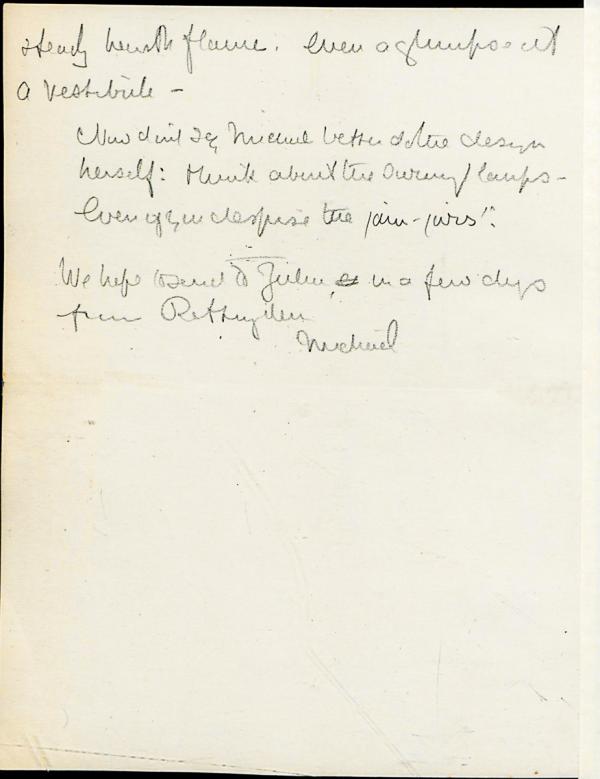 steady hearth flame. Even a glimpse at
a vestibule –
Now don't say Michael better do the design
herself: think about the swinging lamps –
Even if you despise the jam-jars".
We hope to send to in a few days
from Rottingdean
Michael